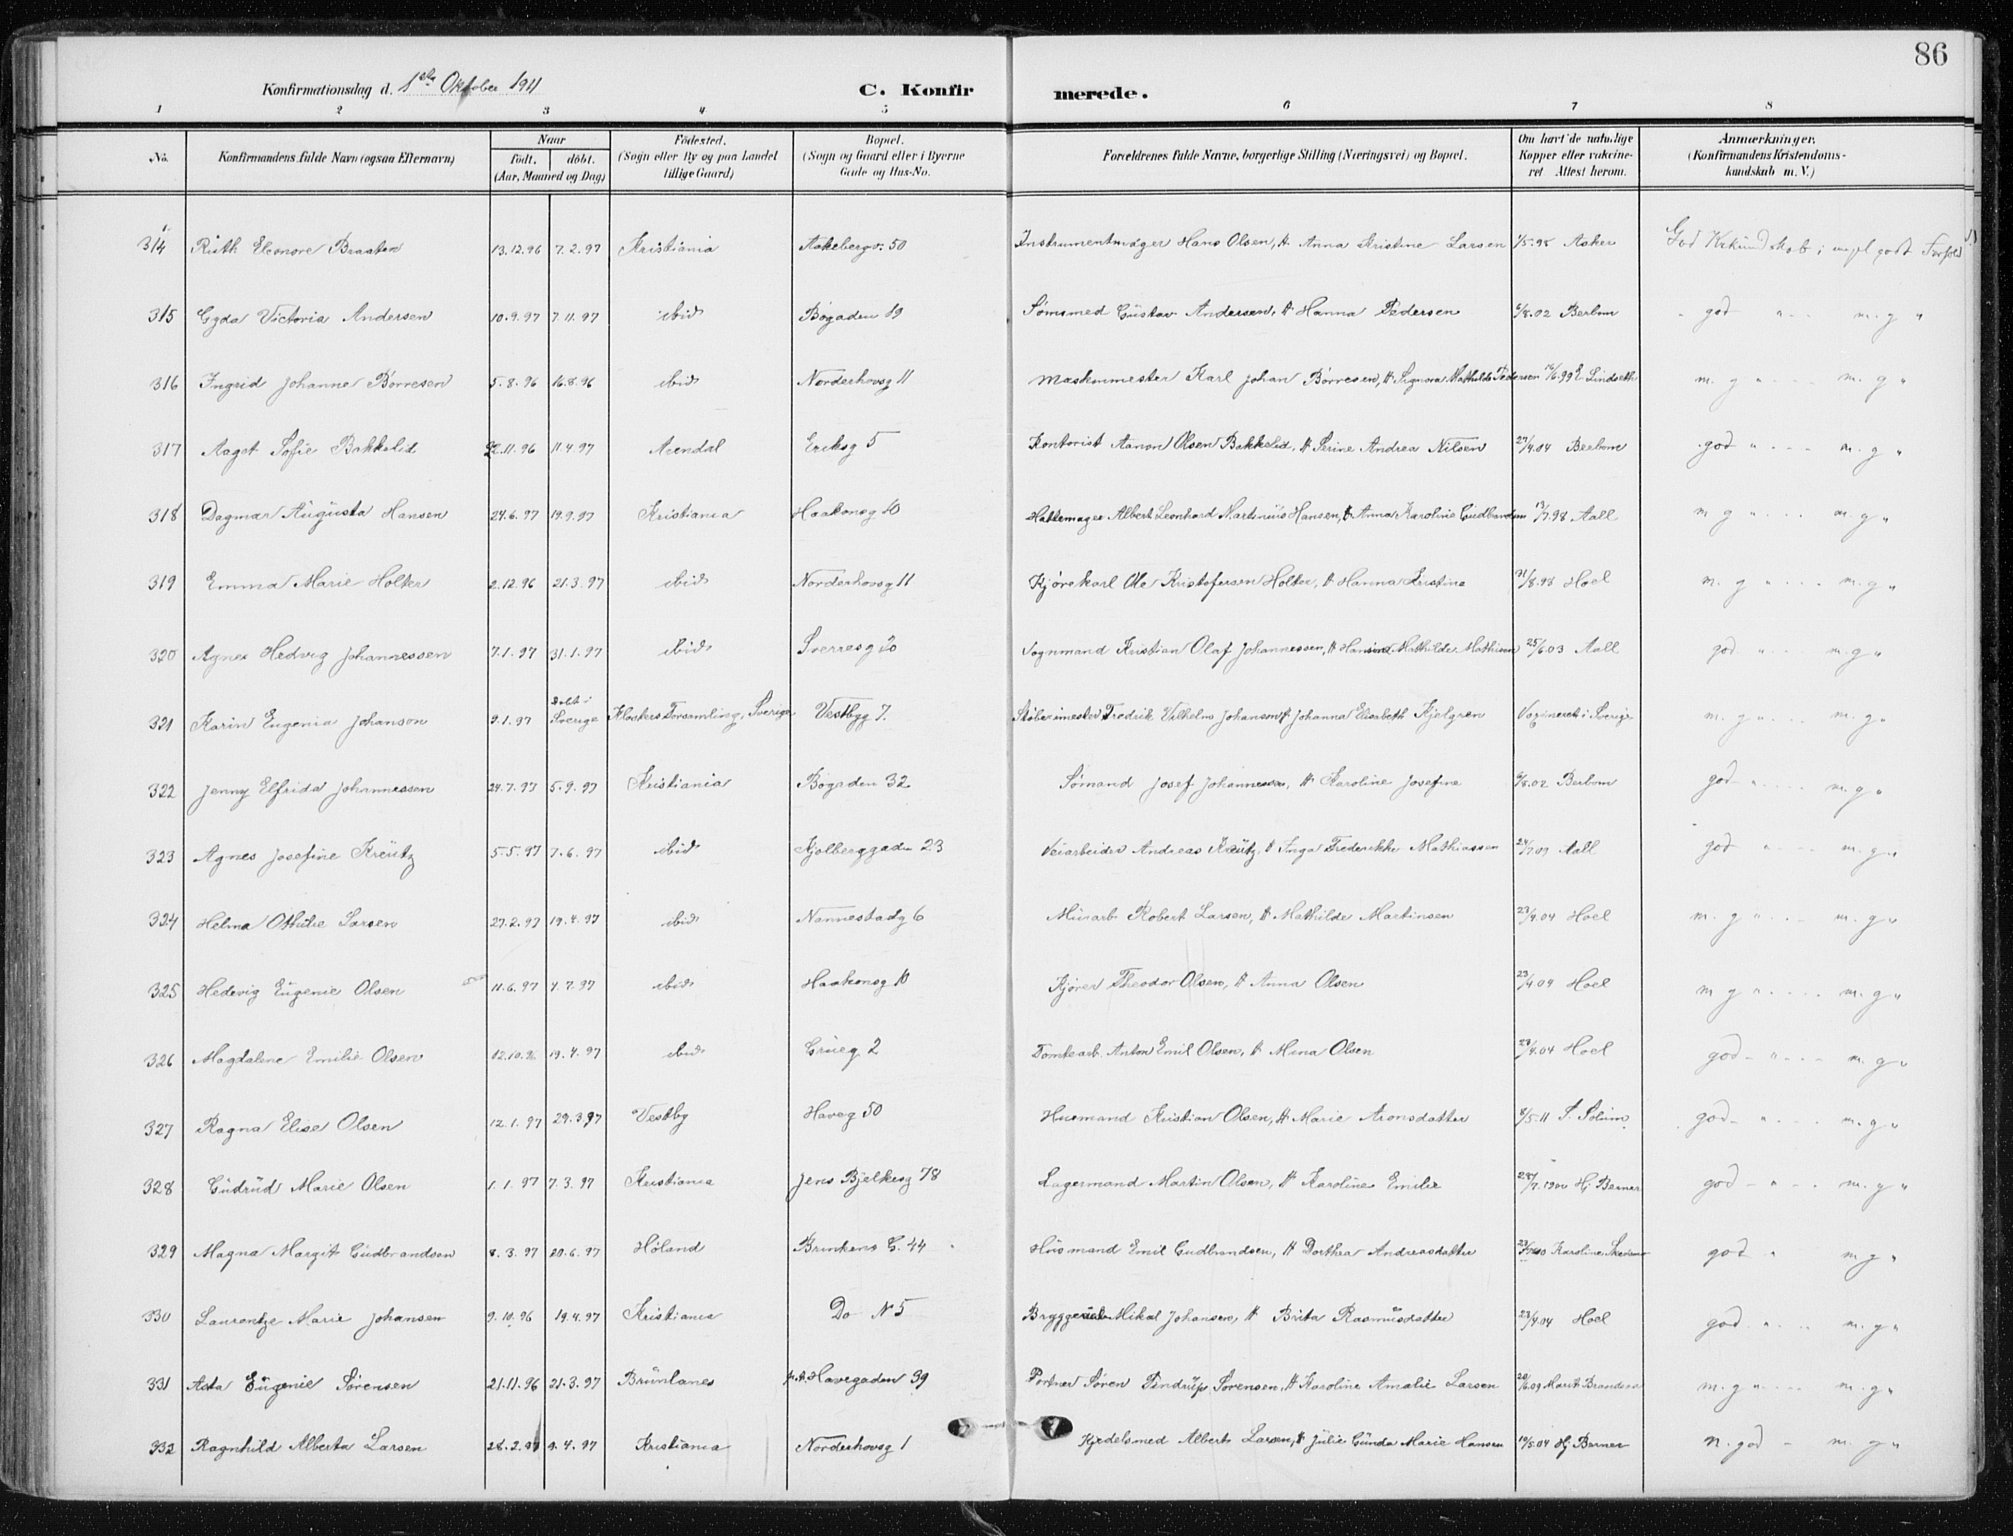 86
Konfirmationsdag d. 1ste Oktober 1911 C. Konfirmerede.
1 2 3 4 5 6 7 8
No. Konfirmandens fulde Navn (ogsaa Efternavn) Naar født. døbt. (Aar, Maaned og Dag) Fødested. (Sogn eller By og paa Landet tillige Gaard) Bopæl. (Sogn og Gaard eller i Byerne Gade og Hus-No. Forældrenes fulde Navne, borgerlige Stilling (Næringsvei) og Bopæl. Om havt de naturlige Kopper eller vaccineret Attest herom. Anmerkninger. (Konfirmandens Kristendomskundskab m. V.)
314 Ruth Eleonore Braaten 13.12.96 7.2.97 Kristiania Aakebergv. 50 Instrumentmager Hans Olsen, H. Anna Kristine Larsen 1/5.98 Asker God Krkundskab; meget godt Forhold
315 Gyda Victoria Andersen 10.9.97 7.11.97 ibid Bøgaden 19 Sømsmed Gustav Andersen, H Hanna Pedersen 6/8.02 Berbom " god " m. g "
316 Ingrid Johanne Børresen 5.8.96 16.8.96 ibid Norderhovsg 11 Maskinmester Karl Johan Børresen, H Signora Mathilde Pedersen E Lindseth m. g " m. g "
317 Aagot Sofie Bakkelid 11.96 11.4.97 Arendal Eriksg 5 Kontorist Aanon Olsen Bakkelid, H Serine Andrea Nilsen 27/4.04 Berbom god " m. g "
318 Dagmar Augusta Hansen 24.6.97 19.9.97 Kristiania Haakonsg 10 Hattemager Albert Leonhard Martinius Hansen, H Anna Karoline Gudbrandsen 13/7.98 Aall m g " m. g "
319 Emma Marie Holter 2.12.96 21.3.97 ibid Norderhovsg 11 Kjørekarl Ole Kristofersen Holter, H Hanna Kristine 31/8.98 Hoel m. g " m. g "
320 Agnes Hedvig Johannessen 7.1.97 31.1.97 ibid Sverresg 20 Sognmand Kristian Olaf Johannessen, H Hansine Mathilde Mathisen 25/6.03 Aall god " m. g "
321 Karin Eugenia Johanson 9.1.97 Døbt i Sverige Klosters Forsamling, Sverige Vestbyg 7. Støberimester Fredrik Vilhelm Johanson, H Johanna Elisabeth Kjelgren Vaxineret i Sverige m. g " m. g "
322 Jenny Elfrida Johannessen 24.7.97 5.9.97 Kristiania Bøgaden 32 Sømand Josef Johannessen, H Karoline Josefine 6/8.02 Berbom god " m. g "
323 Agnes Josefine Kreutz 5.5.97 7.6.97 ibid Kjølberggaden 23 Veiarbeider Andreas Kreutz, H Inga Frederikke Mathiassen Aall god " m. g "
324 Helma Othilie Larsen 27.2.97 19.4.97 ibid Nannestadg 6 Murarb. Robert Larsen, H Mathilde Martinsen 23/4.04 Hoel m. g " m. g "
325 Hedevig Eugenie Olsen 11.6.97 4.7.97 ibid Haakonsg 10 Kjører Theodor Olsen, H Anna Olsen 23/4.04 Hoel m g " m. g "
326 Magdalene Emilie Olsen 12.10.96 19.4.97 ibid Grüeg 2 Tomtearb. Anton Emil Olsen, H Mina Olsen 23/4.04 Hoel god " m. g "
327 Ragna Elise Olsen 12.1.97 29.3.97 Vestby Haveg 50 Husmand Kristian Olsen, H Marie Aronsdatter 8/5.11 S. Solum god " m. g "
328 Gudrud Marie Olsen 1.1.97 7.3.97 Kristiania Jens Bjelkesg 78 Lagermand Martin Olsen, H Karoline Emilie Hj Berner god " m. g "
329 Magna Margit Gudbrandsen 8.3.97 20.6.97 Høland Brinkens G. 44 Husmand Emil Gudbrandsen, H Dorthea Andreasdatter Karoline god " m g "
330 Laurentze Marie Johansen 9.10.96 19.4.97 Kristiania Do N 5 Bryggeriarb Mikal Johansen, H Brita Rasmusdatter 23/4.04 Hoel god " m. g "
331 Asta Eugenie Sørensen 21.11.96 21.3.97 Brunlanes Havegaden 39 Portner Søren Pindrup Sørensen, H Karoline Amalie Larsen Marit Brandens m. g " m. g "
332 Ragnhild Alberta Larsen 28.2.97 9.4.97 Kristiania Norderhovsg 1 Kjedelsmed Albert Larsen, H Julie Gunda Marie Hansen 19/5.04 Hj Berner N. god " m. g "